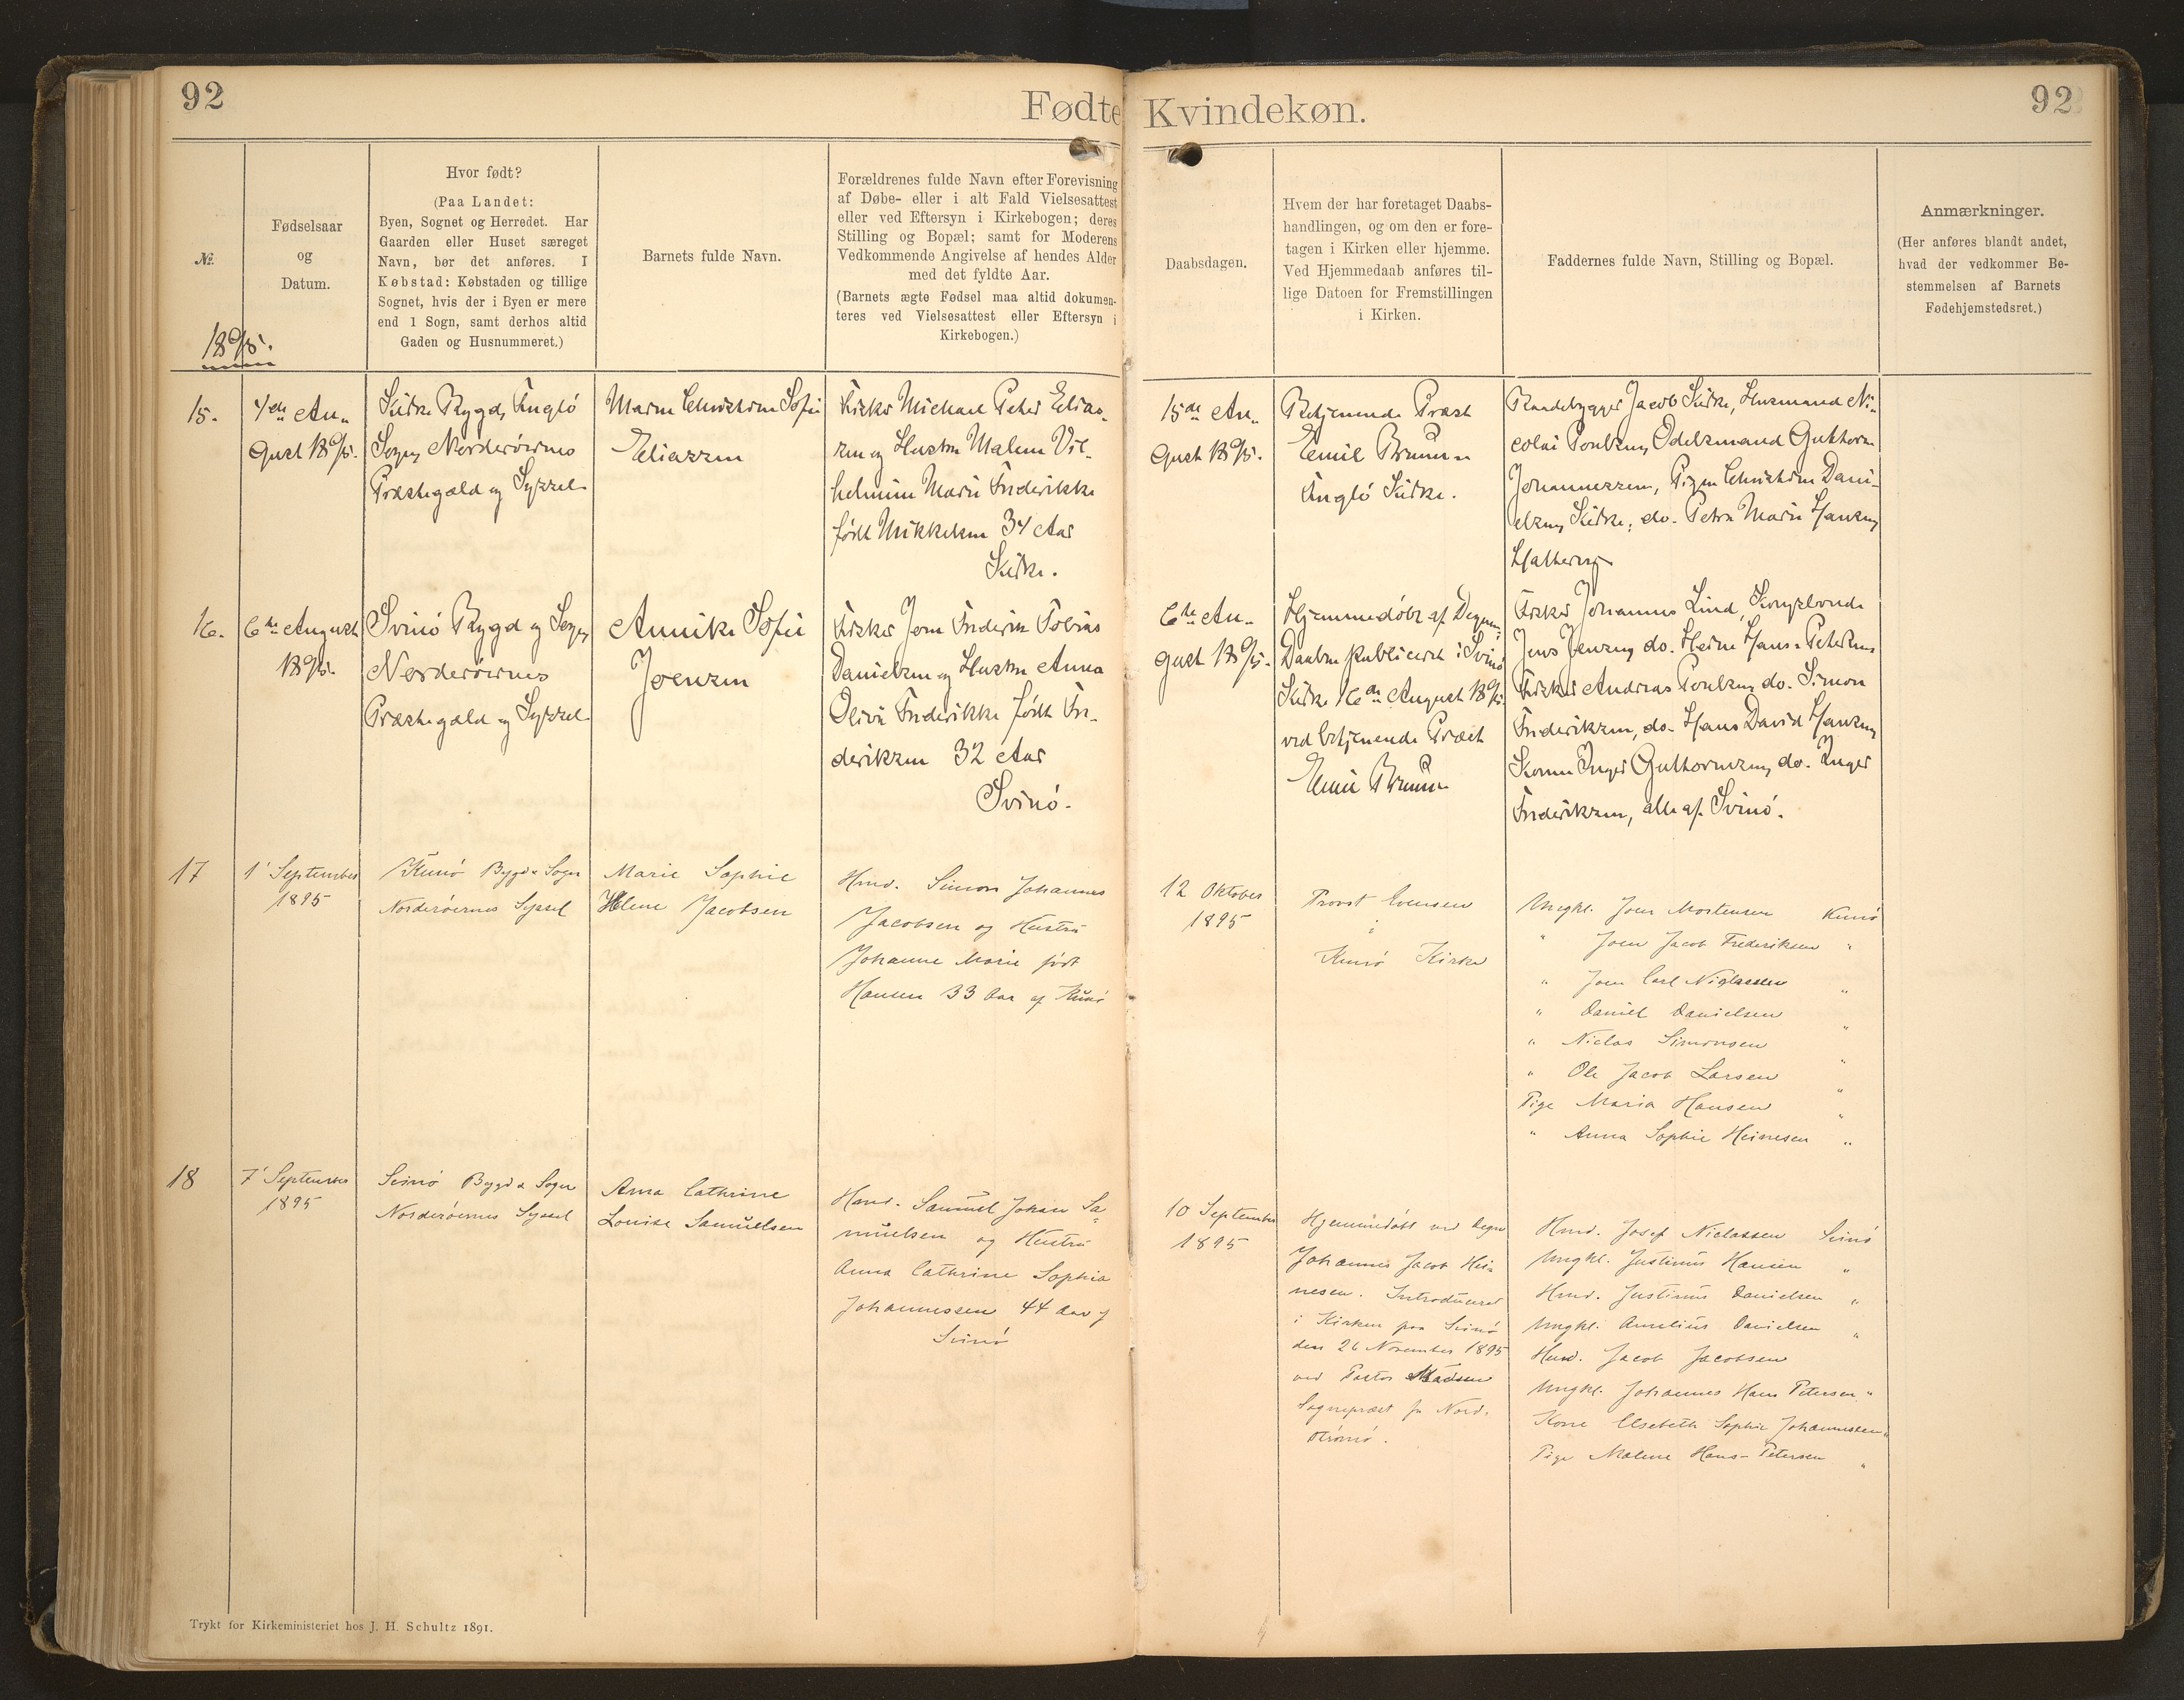 92
Fødte Kvindekøn.
92
№
Fødselsaar
og
Datum.
Hvor født?
(Paa Landet:
Byen, Sognet og Herredet. Har
Gaarden eller Huset særeget
Navn, bør det anføres. I
Købstad: Købstaden og tillige
Sognet, hvis der i Byen er mere
end 1 Sogn, samt derhos altid
Gaden og Husnummeret.)
Barnets fulde Navn.
Forældrenes fulde Navn efter Forevisning
af Døbe- eller i alt Fald Vielsesattest
eller ved Eftersyn i Kirkebogen; deres
Stilling og Bopæl; samt for Moderens
Vedkommende Angivelse af hendes Alder
med det fyldte Aar.
(Barnets ægte Fødsel maa altid dokumen-
teres ved Vielsesattest eller Eftersyn i
Kirkebogen.)
Daabsdagen.
Hvem der har foretaget Daabs-
handlingen, og om den er fore-
tagen i Kirken eller hjemme.
Ved Hjemmedaab anføres til-
lige Datoen for Fremstillingen
i Kirken.
Faddernes fulde Navn, Stilling og Bopæl.
Anmærkninger.
(Her anføres blandt andet,
hvad der vedkommer Be-
stemmelsen af Barnets
Fødehjemstedsret.)
1895.
15.
4de Au-
gust 1895.
Kirke Bygd, Fuglö
Sogn, Norderöernes
Præstegæld og Syssel
Maren Christine Sofie
Eliassen
Fisker Michael Peter Elias-
sen og Hustru Malene Vil-
helmine Marie Frederikke
född Mikkelsen 34 Aar
Kirke.
15de Au-
gust 1895.
Betjenende Præst
Emil Bruun
Fuglö Kirke.
Baadebygger Jacob Kirke, Husmand Ni-
colai Poulsen, Odelsmand Guttorm
Johannessen, Pigen Christine Dani-
elsen, Kirke, do. Petra Marie Hansen,
Hattervig
16.
6te August
1895.
Svinö Bygd og Sogn,
Norderöernes
Præstegæld og Syssel
Annike Sofie
Joensen
Fisker Joen Frederik Tobias
Danielsen og Hustru Anna
Olivia Frederikke född Fre-
deriksen 32 Aar
Svinö.
6te Au-
gust 1895.
Hjemmedöbt af Degnen,
Daaben publiceret i Svinö
Kirke 16de August 1895.
ved betjenende Præst
Emil Bruun
Fisker Johannes Lind, Kongsbonde
Jens Jensen, do. Heine Hans-Petersen
Fisker Andreas Poulsen, do. Simon
Frederiksen, do. Hans David Hansen,
Konen Inger Guttormsen, do. Inger
Frederiksen, alle af Svinö.
17
1' September
1895
Kunö Bygd & Sogn
Norderöernes Syssel
Marie Sophie
Helene Jacobsen
Hmd. Simon Johannes
Jacobsen og Hustru
Johanne Marie født
Hansen 33 Aar af Kunö
12 Oktober
1895
Provst Evensen
i
Kunö Kirke
Ungkl. Joen Mortensen Kunö
" Joen Jacob Frederiksen "
" Joen Carl Niglassen "
" Daniel Danielsen "
" Niclas Simonsen "
" Ole Jacob Larsen "
Pige Maria Hansen "
" Anna Sophie Heinesen "
18
7' September
1895
Svinö Bygd & Sogn
Norderöernes Syssel
Anna Cathrine
Louise Samuelsen
Hmd. Samuel Johan Sa-
muelsen og Hustru
Anna Cathrine Sophia
Johannessen 44 Aar af
Svinö
10 September
1895
Hjemmedöbt ved Degn
Johannes Jacob Hei-
nesen. Introduceret
i Kirken paa Svinö
den 26 November 1895
ved Pastor Madsen
Sognepræst for Nord.
Strömö.
Hmd. Josef Niclassen Svinö
Ungkl. Justinus Hansen "
Hmd. Justinus Danielsen "
Ungkl. Aurelius Danielsen "
Hmd. Jacob Jacobsen
Ungkl. Johannes Hans Petersen "
Kone Elsebeth Sophie Johannessen "
Pige Malene Hans-Petersen "
Trykt for Kirkeministeriet hos J. H. Schultz 1891.